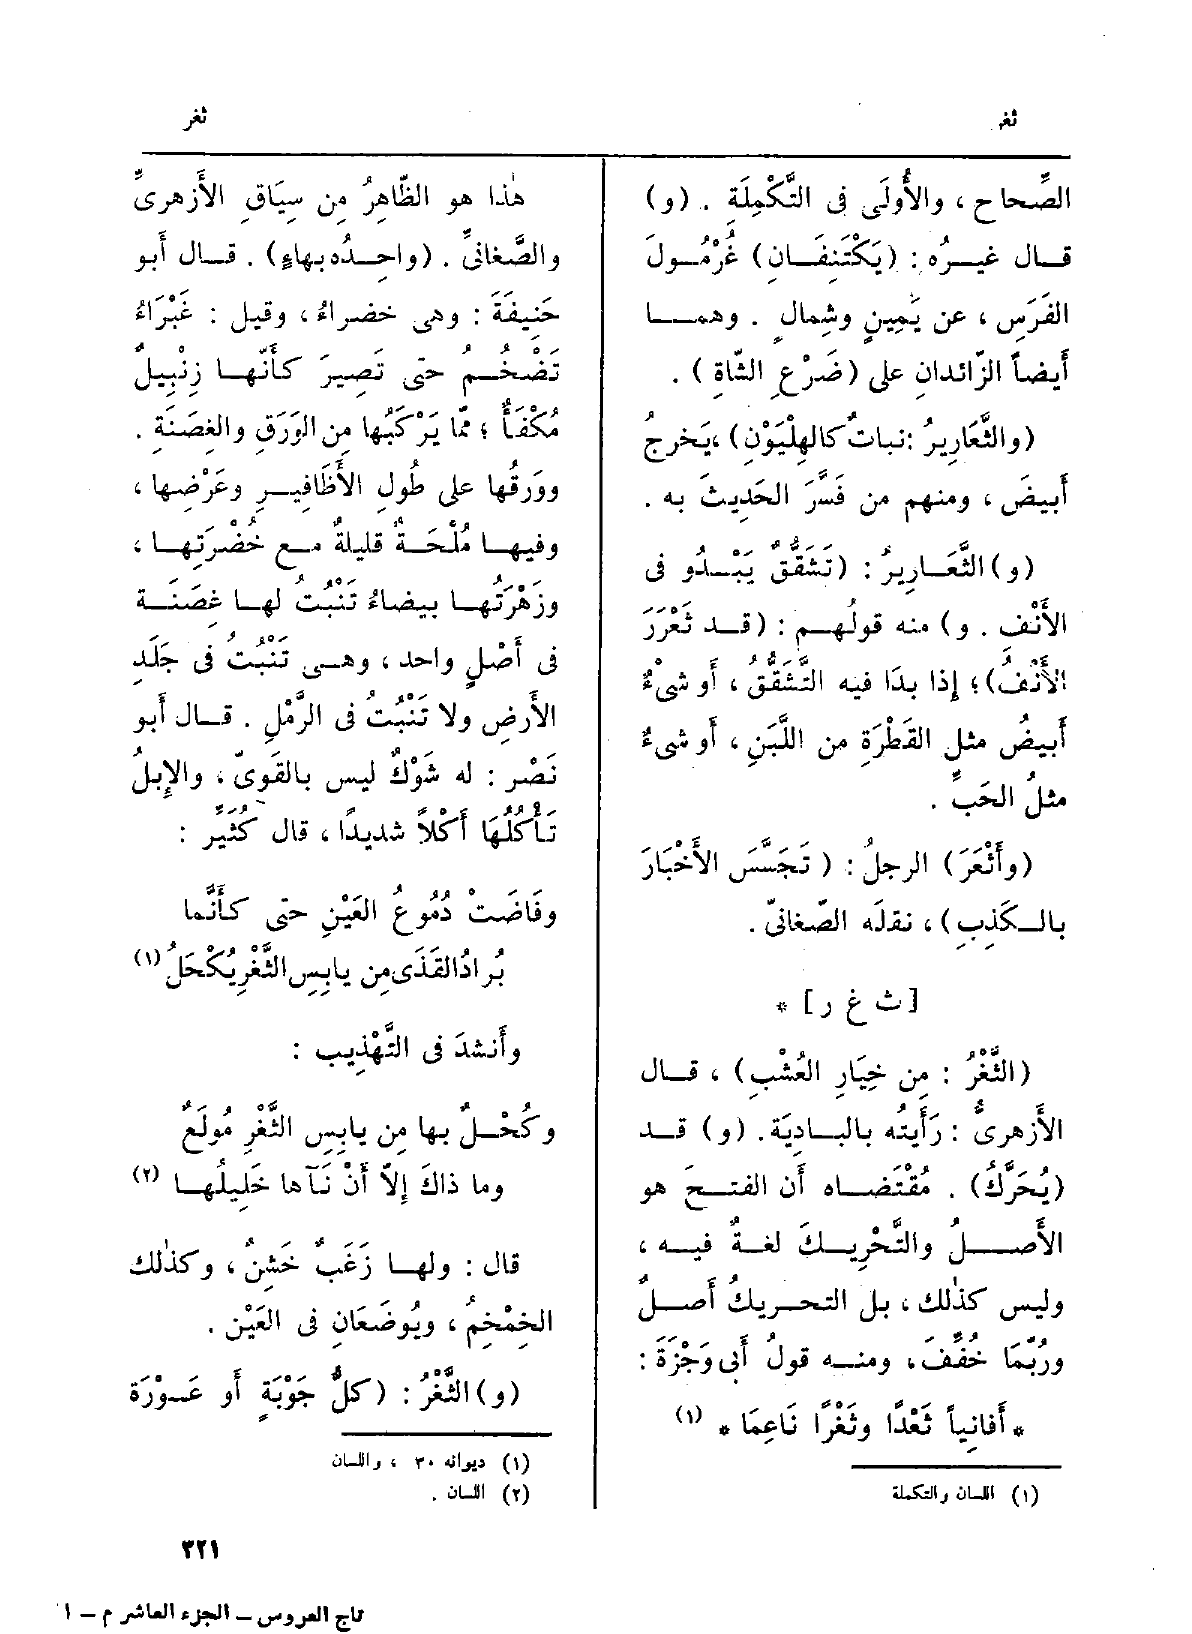 ثغر
ثغر
الصِّحاح ، والأُولَى فى التَّكْمِلَةِ . (و)
قـال غيـرُه : (يَكْتَنِفَـانِ) غُرْمُـولَ
الفَرَسِ ، عن يَمِينٍ وشِمالٍ . وهمــا
أَيضاً الزّائدانِ على (ضَرْعِ الشّاةِ) .
(والثَّعَارِيرُ : نباتٌ كالهِلْيَوْنِ) ، يَخرجُ
أَبيضَ ، ومنهم من فَسَّرَ الحَدِيثَ به .
(و) الثَّعَـارِيرُ : (تَشَقُّقٌ يَبْـدُو فى
الأَنْفِ . و) منه قولُهـم : (قـد ثَعْرَرَ
الأَنْفُ) ؛ إِذا بدَا فيه التَّشَقُّقُ ، أَو شىْءٌ
أَبيضُ مثل القَطْرَةِ من اللَّبَنِ ، أَو شىءٌ
مثلُ الحَبِّ .
(وأَثْعَرَ) الرجلُ : (تَجَسَّسَ الأَخْبَارَ
بالـكَذِبِ) ، نقلَه الصّغانىّ .
[ ث غ ر ] *
(الثَّغْرُ : مِن خِيَارِ العُشْبِ) ، قـال
الأَزهرىُّ : رَأَيتُه بالبـادِيَة . (و) قـد
(يُحَرَّكُ) . مُقْتَضـاه أن الفتـح هو
الأَصــلُ والتَّحْرِيـكَ لغـةٌ فيـه ،
وليس كذٰلك ، بل التحـريكُ أَصـلٌ
ورُبّمَا خُفِّفَ ، ومنـه قولُ أَبى وَجْزَةَ :
* أَفانِياً ثَعْدًا وثَغْرًا نَاعِمَا * (١)
(١) اللسان والتكملة
هٰذا هو الظّاهِرُ مِن سِيَاقِ الأَزهرىِّ
والصَّغانىِّ . (واحِـدُه بهاءٍ) . قـال أَبو
حَنِيفَةَ : وهى خضراءُ ، وقيل : غَبْرَاءُ
تَضْخُـمُ حتى تَصِيرَ كـأَنّهـا زِنْبِيلٌ
مُكْفَأٌ ؛ ممّا يَرْكَبُها مِن الوَرَقِ والغِصَنَةِ .
وورَقُها على طُولِ الأَظَافِيـرِ وعَرْضِها ،
وفيهـا مُلْحَـةٌ قليلةٌ مـع خُضْرَتِهـا ،
وزَهْرَتُهـا بيضاءُ تَنْبُتُ لهـا غِصَنَـة
فى أَصْلٍ واحد ، وهـى تَنْبُتُ فى جَلَدِ
الأَرضِ ولا تَنْبُتُ فى الرَّمْلِ . قـال أَبو
نَصْر : له شَوْكٌ ليس بالقَوىّ ، والإِبلُ
تَـأْكُلُهَا أَكْلاً شديدًا ، قال كُثَيِّر :
وفَاضَتْ دُمُوعُ العَيْنِ حتى كـأَنَّما
بُرادُ القَذَى مِن يابِسِ الثَّغْرِ يُكْحَلُ (١)
وأَنشدَ فى التَّهْذِيب :
وكُحْـلٌ بها مِن يابِسِ الثَّغْرِ مُولَعٌ
وما ذاكَ إِلاّ أَنْ نَـآها خَلِيلُهـا (٢)
قال : ولهـا زَغَبٌ خَشنٌ ، وكذٰلك
الخِمْخِمُ ، ويُوضَعَانِ فى العَيْنِ .
(و) الثَّغْرُ : (كلُّ جَوْبَةٍ أَو عَـوْرَة
(١) ديوانه ٣٠ ، واللسان
(٢) اللسان .
٣٢١
تاج العروس – الجزء العاشر م – ١